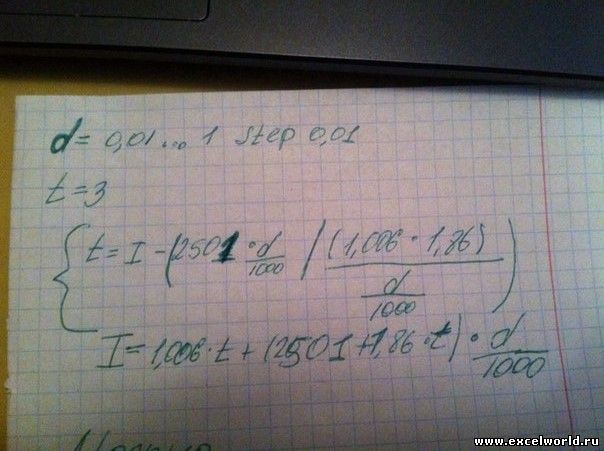 d = 0,01 ... 1 step 0,01
t = 3
t = I - (2501 · d/1000 / (1,006 · 1,86) / d/1000)
I = 1,006 · t + (2501 + 1,86 · t) · d/1000
www.excelworld.ru